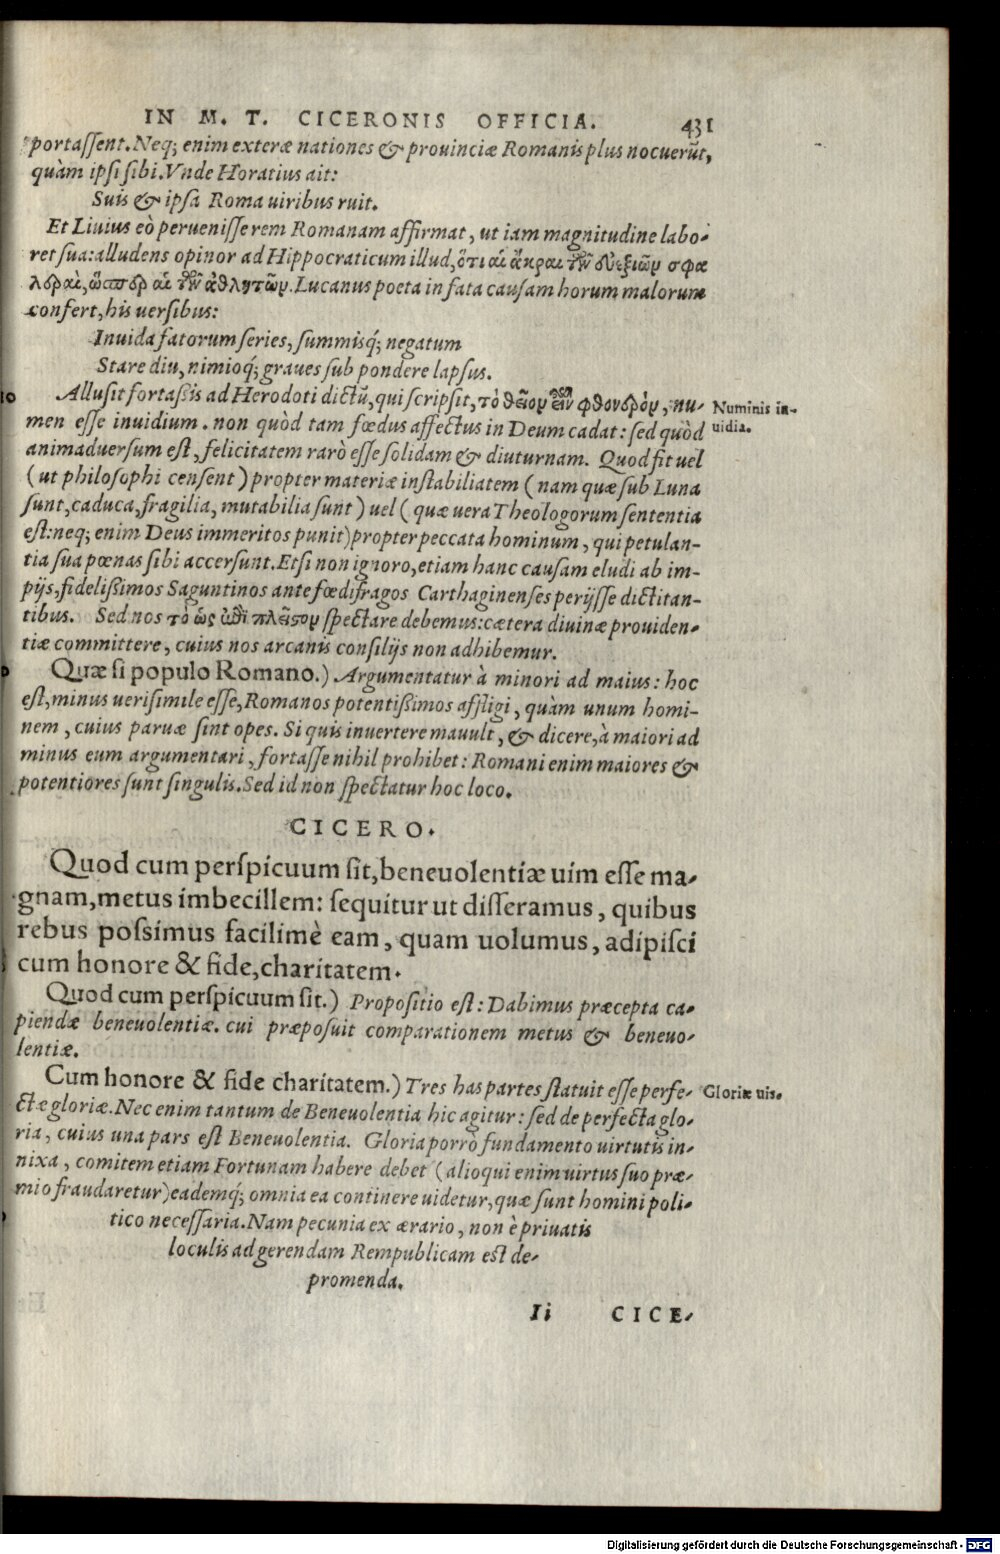 IN M. T. CICERONIS OFFICIA. 431
portaſſent. Neq; enim exteræ nationes & prouinciæ Romanis plus nocuerũt,
quàm ipſi ſibi. Vnde Horatius ait:
Suis & ipſa Roma uiribus ruit.
Et Liuius eò perueniſſe rem Romanam affirmat, ut iam magnitudine labo-
ret ſua: alludens opinor ad Hippocraticum illud, ὅτι αἱ ἄκραι τῶν εὐεξιῶν σφα
λεραὶ, ὥσπερ αἱ τῶν ἀθλητῶν. Lucanus poeta in fata cauſam horum malorum
confert, his uerſibus:
Inuida fatorum ſeries, ſummisq́; negatum
Stare diu, nimioq́; graues ſub pondere lapſus.
10 Alluſit fortaßis ad Herodoti dictũ, qui ſcripſit, τὸ θεῖον εἶναι φθονερὸν, nu- Numinis in-
men eſſe inuidium. non quòd tam fœdus affectus in Deum cadat: ſed quòd uidia.
animaduerſum eſt, felicitatem rarò eſſe ſolidam & diuturnam. Quod fit uel
(ut philoſophi cenſent) propter materiæ inſtabiliatem (nam quæ ſub Luna
ſunt, caduca, fragilia, mutabilia ſunt) uel (quæ uera Theologorum ſententia
eſt: neq; enim Deus immeritos punit) propter peccata hominum, qui petulan-
tia ſua pœnas ſibi accerſunt. Etſi non ignoro, etiam hanc cauſam eludi ab im-
pijs, fidelißimos Saguntinos ante fœdifragos Carthaginenſes perijſſe dictitan-
tibus. Sed nos τὸ ὡς ἐπὶ πλεῖστον ſpectare debemus: cætera diuinæ prouiden-
tiæ committere, cuius nos arcanis conſilijs non adhibemur.
Quæ ſi populo Romano.) Argumentatur à minori ad maius: hoc
eſt, minus ueriſimile eſſe, Romanos potentißimos affligi, quàm unum homi-
nem, cuius paruæ ſint opes. Si quis inuertere mauult, & dicere, à maiori ad
minus eum argumentari, fortaſſe nihil prohibet: Romani enim maiores &
potentiores ſunt ſingulis. Sed id non ſpectatur hoc loco.
CICERO.
Quod cum perſpicuum ſit, beneuolentiæ uim eſſe ma-
gnam, metus imbecillem: ſequitur ut diſſeramus, quibus
rebus poſsimus facilimè eam, quam uolumus, adipiſci
cum honore & fide, charitatem.
Quod cum perſpicuum ſit.) Propoſitio eſt: Dabimus præcepta ca-
piendæ beneuolentiæ. cui præpoſuit comparationem metus & beneuo-
lentiæ.
Cum honore & fide charitatem.) Tres has partes ſtatuit eſſe perfe- Gloriæ uis.
ctæ gloriæ. Nec enim tantum de Beneuolentia hic agitur: ſed de perfecta glo-
ria, cuius una pars eſt Beneuolentia. Gloria porrò fundamento uirtutis in-
nixa, comitem etiam Fortunam habere debet (alioqui enim uirtus ſuo præ-
mio fraudaretur) eademq́; omnia ea continere uidetur, quæ ſunt homini poli-
tico neceſſaria. Nam pecunia ex ærario, non è priuatis
loculis ad gerendam Rempublicam eſt de-
promenda.
Ii CICE-
Digitalisierung gefördert durch die Deutsche Forschungsgemeinschaft - DFG